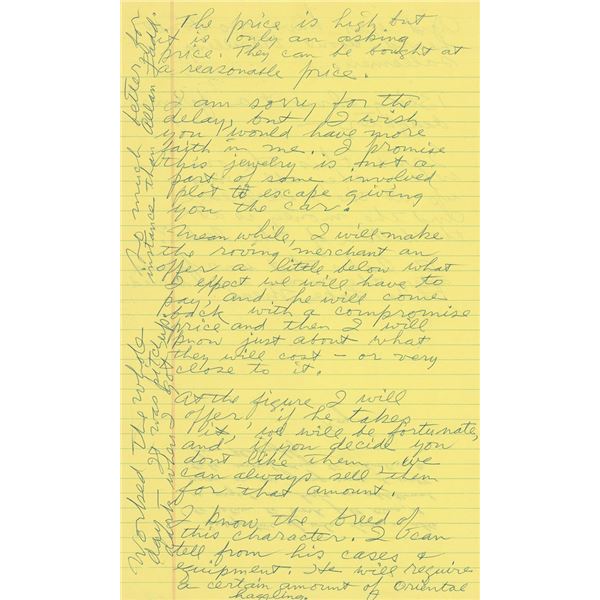 The price is high but
it is only an asking
price. They can be bought at
a reasonable price.
I am sorry for the
delay, but I wish
you would have more
faith in me. I promise
this jewelry is not a
part of some involved
plot to escape giving
you the car.
Mean while, I will make
the roving merchant an
offer a little below what
I expect we will have to
pay, and he will come
back with a compromise
price and then I will
know just about what
they will cost — or very
close to it.
At the figure I will
offer, if he takes
it, we will be fortunate,
and, if you decide you
dont like them we
can always sell them
for that amount.
I know the breed of
this character. I can
tell from his cases &
equipment. He will require
a certain amount of Oriental
haggling.
Worked the whole
day — It was pitch
when I got up.
So much better for
instance than Allan Ladd.